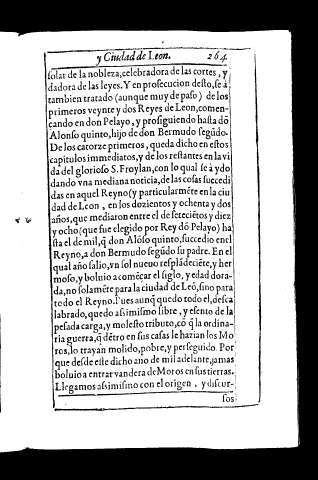 y Ciudad de Leon. 264
solar de la nobleza, celebradora de las cortes, y
dadora de las leyes. Y en prosecucion desto, se à
tambien tratado (aunque muy de paso) de los
primeros veynte y dos Reyes de Leon, comen-
çando en don Pelayo, y prosiguiendo hasta dõ
Alonso quinto, hijo de don Bermudo segũdo.
De los catorze primeros, queda dicho en estos
capitulos immediatos, y de los restantes en la vi
da del glorioso S. Froylan, con lo qual se à ydo
dando vna mediana noticia, de las cosas succedi
das en aquel Reyno (y particularmẽte en la ciu
dad de Leon, en los dozientos y ochenta y dos
años, que mediaron entre el de setecietos y diez
y ocho (que fue elegido por Rey dõ Pelayo) ha
sta el de mil, q̃ don Alõso quinto, succedio en el
Reyno, a don Bermudo segũdo su padre. En el
qual año salio, vn sol nueuo resplãdeciẽte, y her
moso, y boluio a começar el siglo, y edad dora-
da, no solamẽte para la ciudad de Leõ, sino para
todo el Reyno. Pues aunq̃ quedo todo el, desca
labrado, quedo assimismo libre, y esento de la
pesada carga, y molesto tributo, cõ q̃ la ordina-
ria guerra, q̃ dẽtro en sus casas le hazian los Mo
ros, lo trayan molido, pobre, y perseguido. Por
que desde este dicho año de mil adelante, jamas
boluio a entrar vandera de Moros en sus tierras.
Llegamos assimismo con el origen, y discur-
sos